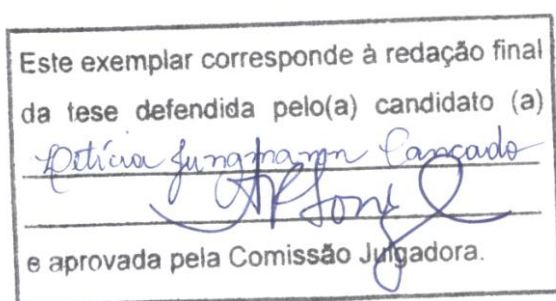 Este exemplar corresponde à redação final
da tese defendida pelo(a) candidato (a)
Letícia Jungmann Cançado
e aprovada pela Comissão Julgadora.